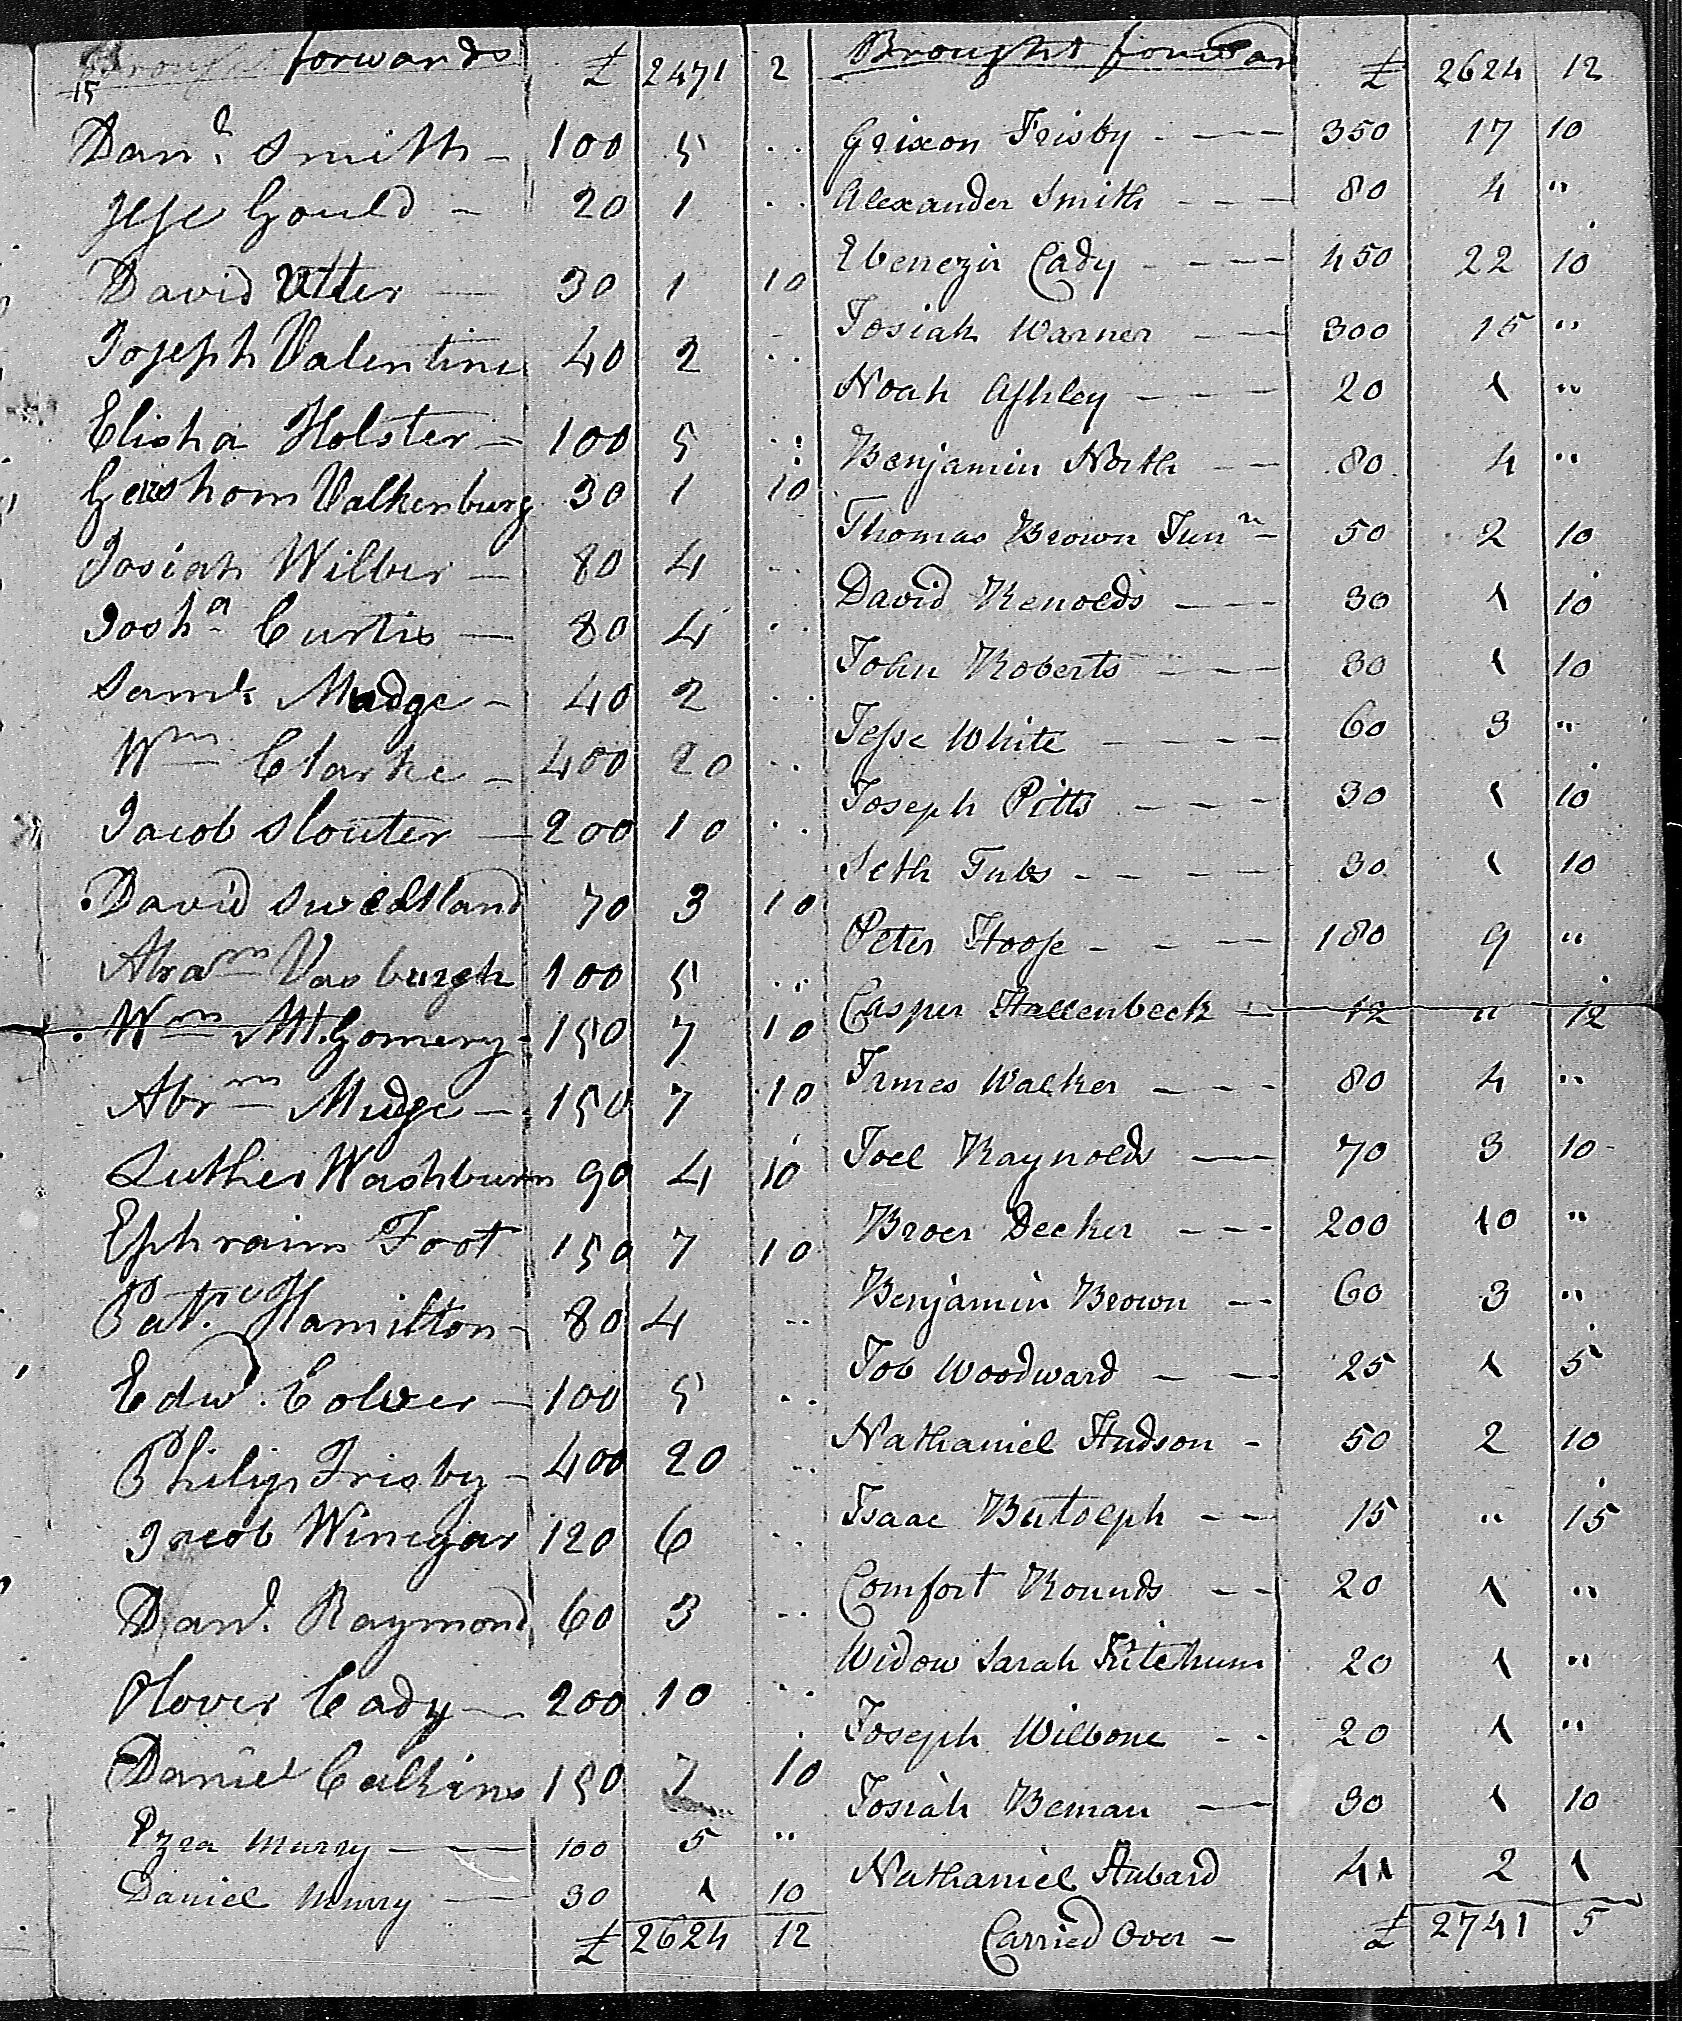 Brought forwards £ 2471 2
15
Danl. Smith - 100 5 ..
Jesse Gould - 20 1 ..
David Utter — 30 1 10
Joseph Valentine 40 2 ..
Elisha Holster — 100 5 ..
Gershom Valkenburg 30 1 10
Josiah Wilber — 80 4 ..
Josha Curtis — 80 4 ..
Saml. Mudge - 40 2 ..
Wm Clarke - 400 20 ..
Jacob Slouter — 200 10 ..
David Sweetland 70 3 10
Abram Vasburgh 100 5 ..
Wm Mtgomery - 150 7 10
Abrm Mudge — 150 7 10
Luther Washburn 90 4 10
Ephraim Foot 150 7 10
Patrc. Hamilton - 80 4 ..
Edwd. Colver - 100 5 ..
Philip Frisby - 400 20 ..
Jacob Winegar 120 6 .
Danl. Raymond 60 3 ..
Oliver Cady — 200 10 ..
Daniel Calkins 150 7 10
Ezra Murry — — 100 5 "
Daniel Murry — 30 1 10
£ 2624 12
Brought forward £ 2624 12
Grixon Frisby - — 350 17 10
Alexander Smith - - — 80 4 "
Ebenezir Cady - - - — 450 22 10
Josiah Warner — — 300 15 "
Noah Ashley - - — 20 1 "
Benjamin North - — 80 4 "
Thomas Brown Junr - 50 2 10
David Renolds — — 30 1 10
John Roberts - - — 30 1 10
Jesse White - - - — 60 3 "
Joseph Pitts - - — 30 1 10
Seth Tubs - - - — 30 1 10
Peter Hoose - - — 180 9 "
Casper Hallenbeck — 12 " 12
James Walker — - - 80 4 "
Joel Raynolds — 70 3 10
Broer Decker — - - 200 10 "
Benjamin Brown — 60 3 "
Job Woodward — — 25 1 5
Nathaniel Hudson - 50 2 10
Isaac Butolph - — 15 " 15
Comfort Rounds - - 20 1 "
Widow Sarah Kitchum 20 1 "
Joseph Wilbone - - 20 1 "
Josiah Beman — 30 1 10
Nathaniel Hubard 41 2 1
Carried Over - £ 2741 5